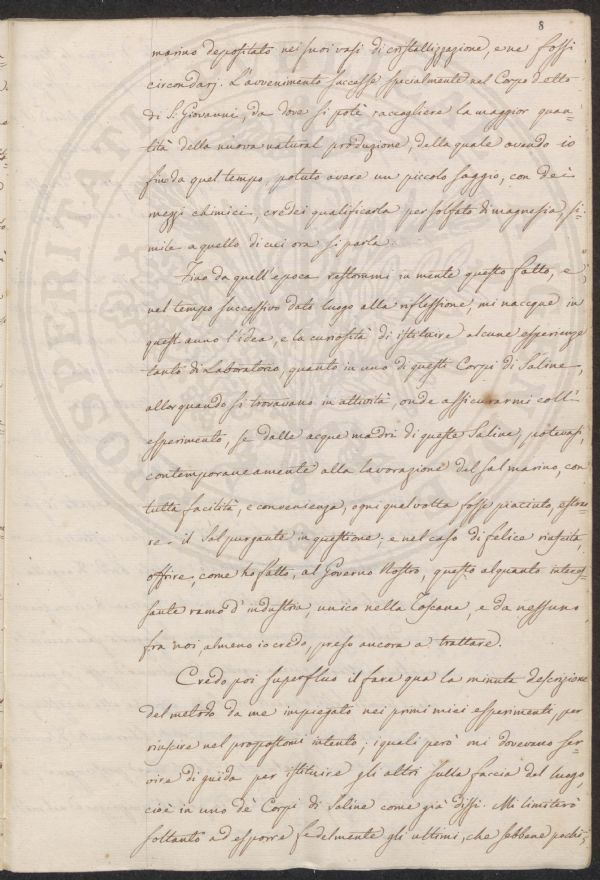 8
marino depositato nei suoi vasi di cristallizzazione, e ne fossi
circondarj. L'avvenimento successe specialmente nel Corpo detto
di S. Giovanni, da dove si potè raccogliere la maggior quan=
tità della nuova natural produzione, della quale avendo io
fino da quel tempo, potuto avere un piccolo saggio, con dei
mezzi chimici, credei qualificarla per solfato di magnesia, si=
mile a quello di cui ora si parla.
Fino da quell'epoca restommi in mente questo fatto, e,
nel tempo successivo dato luogo alla riflessione, mi nacque in
quest'anno l'idea, e la curiosità di istituire alcune esperienze
tanto di Laboratorio, quanto in uno di questi Corpi di Saline,
allor quando si trovavano in attività, onde assicurarmi coll'
esperimento, se dalle acque madri di queste Saline, potevasi,
contemporaneamente alla lavorazione del sal marino, con
tutta facilità, e convenienza, ogni qual volta fosse piaciuto, estrar=
re il Sal purgante in questione; e nel caso di felice riuscita,
offrire, come ho fatto, al Governo Nostro, questo alquanto interes=
sante ramo d'industria, unico nella Toscana, e da nessuno
fra noi almeno io credo, preso ancora a trattare.
Credo poi superfluo il fare qua la minuta descrizione
del metodo da me impiegato nei primi miei esperimenti, per
riuscire nel propostomi intento; i quali però mi dovevano ser=
vire di guida per istituire gli altri sulla faccia del luogo,
cioè in uno de' Corpi di Saline come già dissi. Mi limiterò
soltanto ad esporre fedelmente gli ultimi, che sebbene pochi,
PROSPERITATI